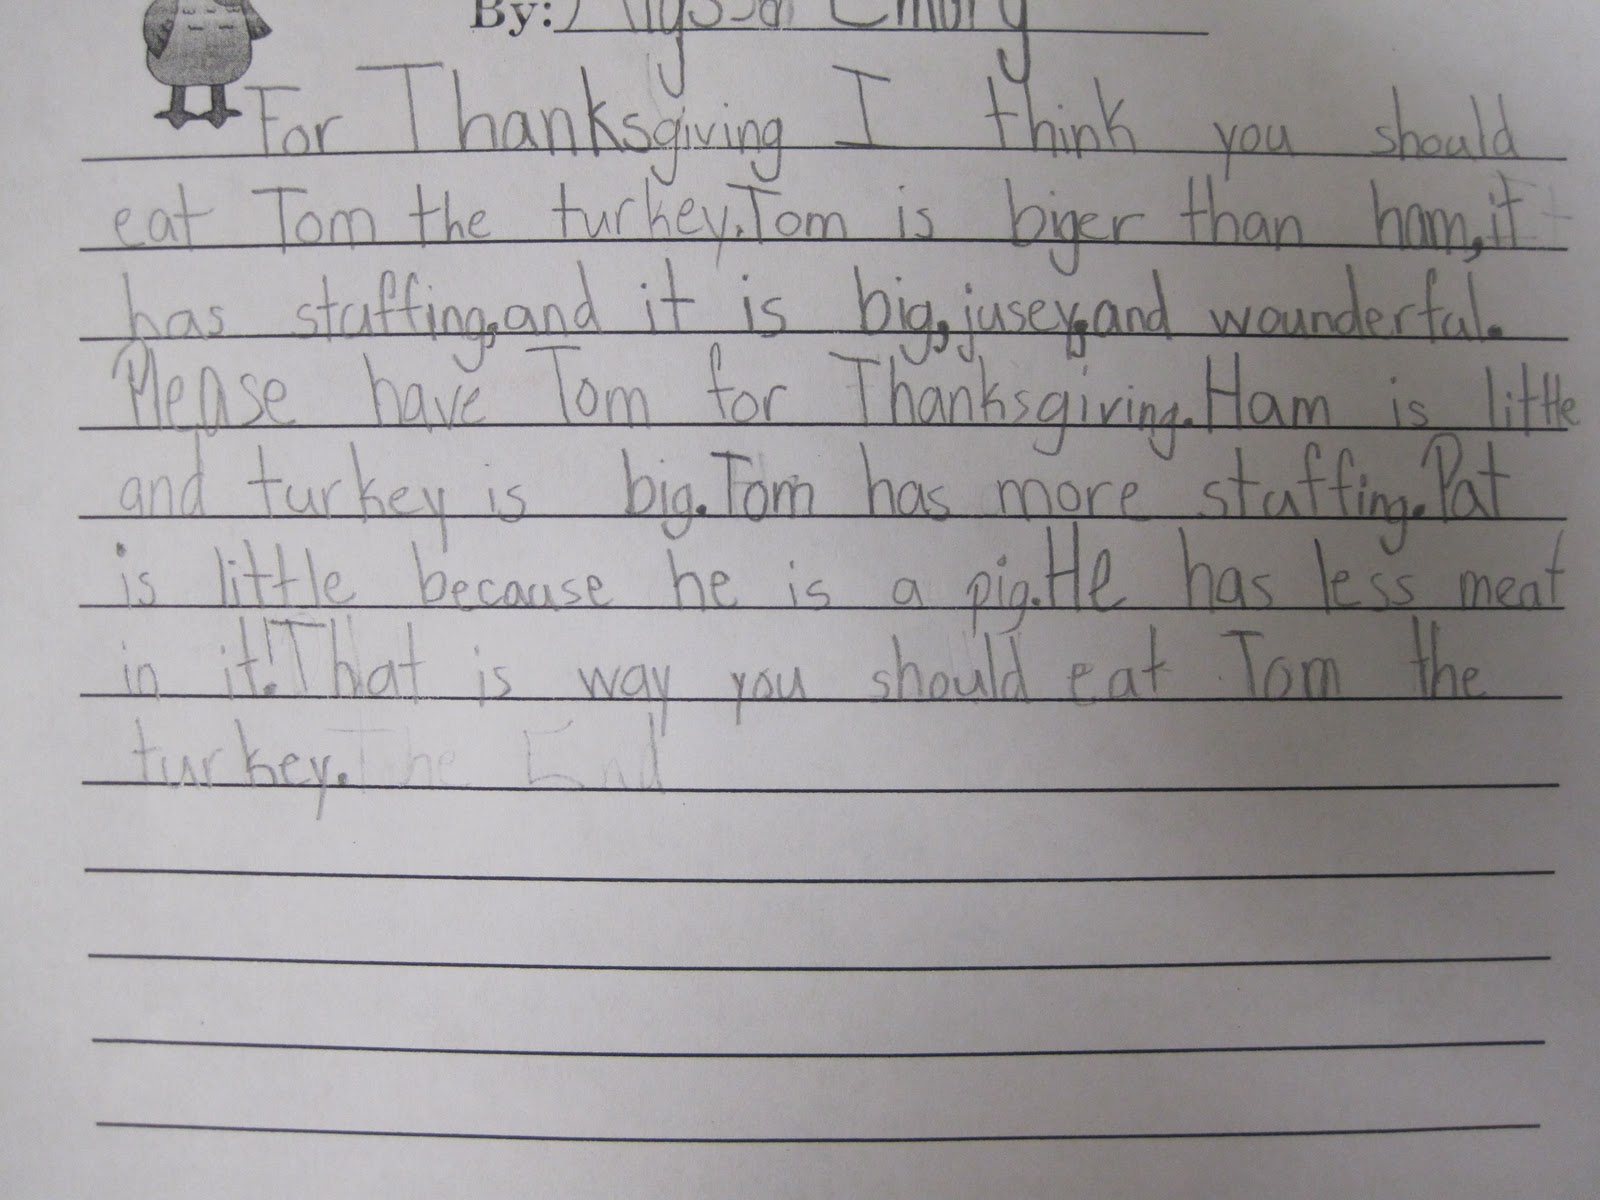 By: Alyssa Emory
For Thanksgiving I think you should
eat Tom the turkey. Tom is biger than ham, it
has stuffing, and it is big, jusey, and wounderful.
Please have Tom for Thanksgiving. Ham is little
and turkey is big. Tom has more stuffing. Pat
is little because he is a pig. He has less meat
in it! That is way you should eat Tom the
turkey. The End